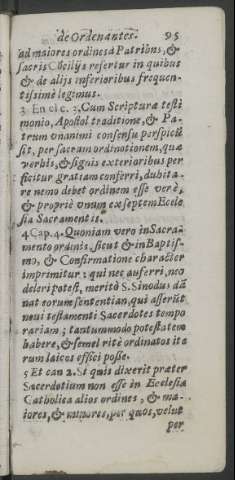 de Ordenantes. 95
ad maiores ordines a Patribus, &
sacris Cõcilijs refertur in quibus
& de alijs inferioribus frequen-
tissimè legimus.
3 En el c. 3. Cum Scripturæ testi
monio, Apostol traditione, & Pa-
trum vnanimi consensu perspicuũ
sit, per sacram ordinationem, quæ
verbis, & signis exterioribus per
ficitur gratiam conferri, dubita-
re nemo debet ordinem esse verè,
& propriè vnum ex septem Eccle
sia Sacramentis.
4 Cap. 4. Quoniam vero in Sacra-
mento ordinis, sicut & in Baptis-
mo, & Confirmatione character
imprimitur: qui nec auferri, nec
deleri potest, meritò S. Sinodus dã
nat eorum sententian, qui asserũt
noui testamenti Sacerdotes tempo
rariam; tantummodo potestatem
habere, & semel ritè ordinatos ite
rum laicos effici posse.
5 Et can 2. Si quis dixerit præter
Sacerdotium non esse in Ecclesia
Catholica alios ordines, & ma-
iores, & minores, per quos, velut
per